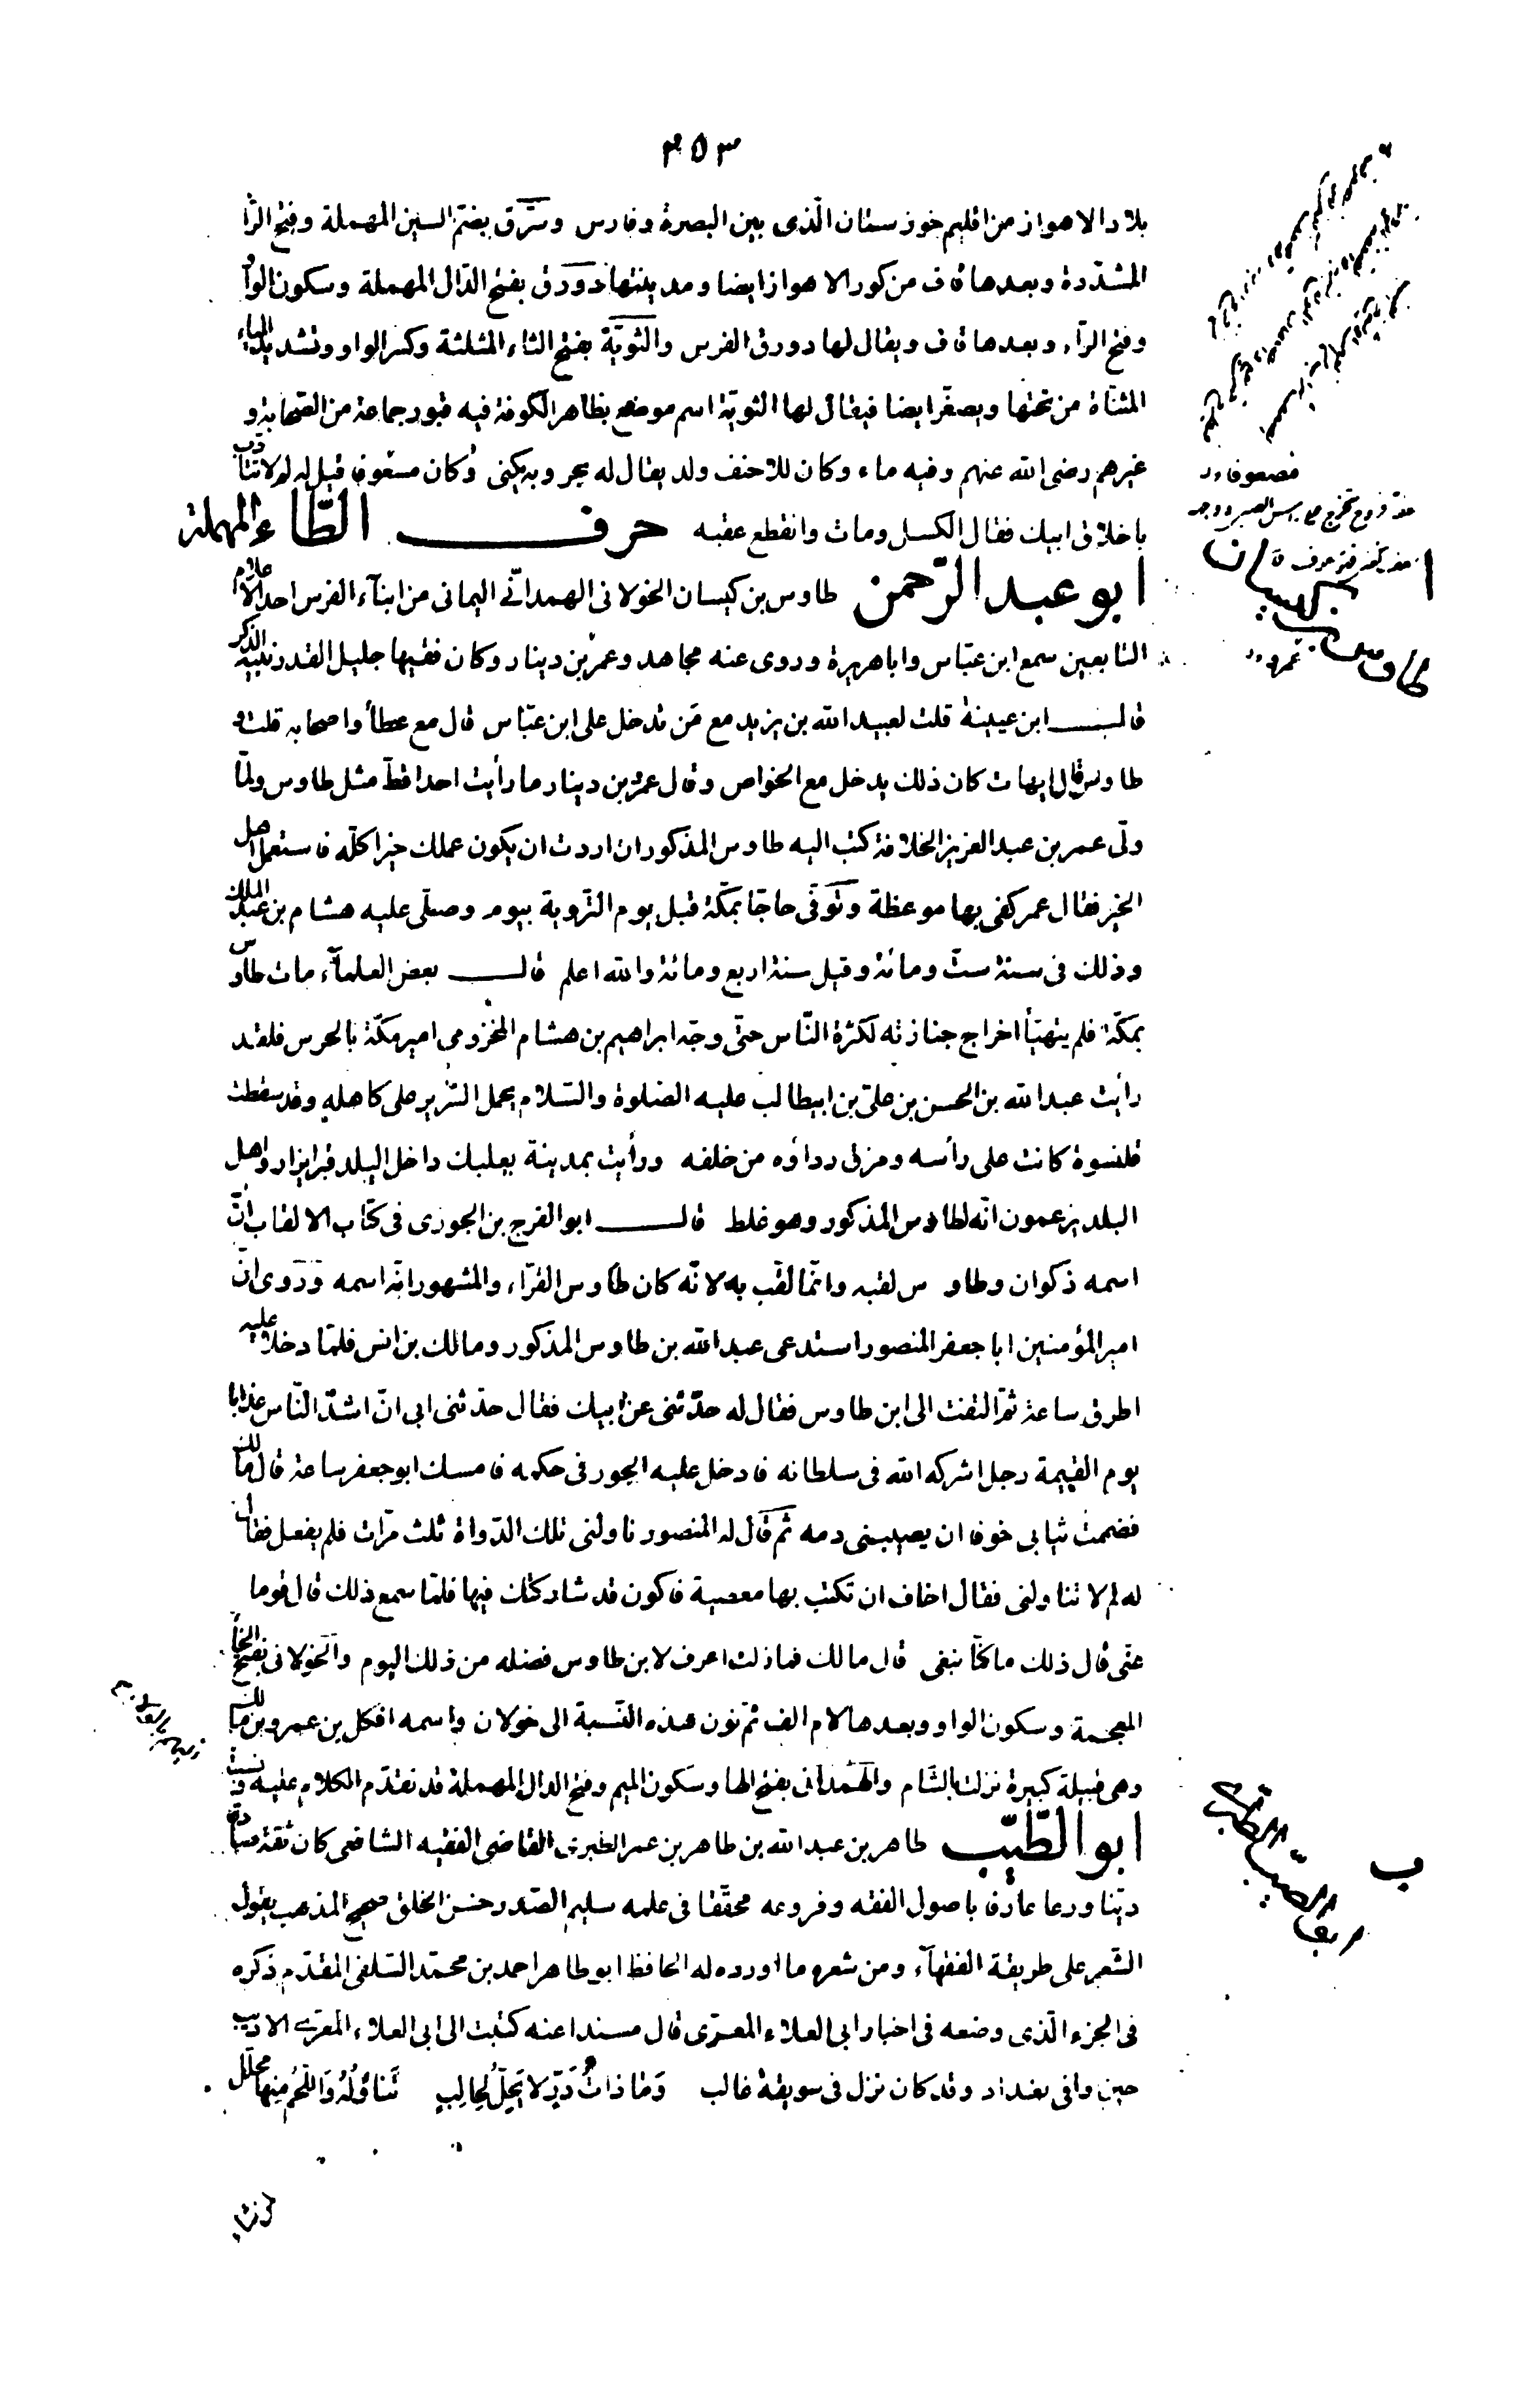 ٢٥٣
بلاد الاهواز من اقليم خوزستان الّذى بين البصرة وفارس وسُرَّق بضمّ السين المهملة وفتح الرّا
المشدّدة وبعدها قاف من كور الاهواز ايضا ومدينتها دَوْرَق بفتح الدّال المهملة وسكون الواو
وفتح الرّاء وبعدها قاف ويقال لها دورق الفرس والثويّة بفتح الثاء المثلثة وكسر الواو وتشديد الياء
المثنّاة من تحتها ويصغّر ايضا فيقال لها الثويّة اسم موضع بظاهر الكوفة فيه قبور جماعة من الصّحابة و
غيرهم رضى الله عنهم وفيه ماء وكان للاحنف ولد يقال له بحر وبه يكنى وكان مسعوفا قيل له لم لا تتأدّب
باخلاق ابيك فقال الكسل ومات وانقطع عقبه حرف الطّاء المهملة
ابو عبد الرّحمن طاوس بن كيسان الخولانى الهمدانّى اليمانى من ابنآء الفرس احد الاعلام
التابعين سمع ابن عبّاس واباهريرة وروى عنه مجاهد وعمرو بن دينار وكان فقيها جليل القدر نبيه الذكر
قال ابن عيينة قلت لعبيد الله بن يزيد مع مَن تدخل على ابن عبّاس قال مع عطأ واصحابه قلت و
طاوس قال ايهات كان ذلك يدخل مع الخواص وقال عمرو بن دينار ما رأيت احدا قطّ مثل طاوس ولمّا
ولّى عمر بن عبد العزيز الخلافة كتب اليه طاوس المذكور ان اردت ان يكون عملك خيرا كلّه فاستعمل اهل
الخير فقال عمر كفى بها موعظة وتوفّى حاجّا بمكّة قبل يوم التّروية بيوم وصلّى عليه هشام بن عبد الملك
وذلك فى سنة ستّ ومائة وقيل سنة اربع ومائة والله اعلم قال بعض العلمآء مات طاوس
بمكّة فلم يتهيّأ اخراج جنازته لكثرة النّاس حتّى وجّه ابراهيم بن هشام المخزومى امير مكّة بالحرس فلقد
رأيت عبد الله بن الحسن بن علىّ بن ابيطالب عليه الصّلوة والسّلام يحمل السّرير على كاهله وقد سقطت
قلنسوة كانت على رأسه ومزق رداؤه من خلفه ورأيت بمدينة بعلبك داخل البلد قبرا يزار واهل
البلد يزعمون انّه لطاوس المذكور وهو غلط قال ابو الفرج بن الجوزى فى كتاب الالقاب انّ
اسمه ذكوان وطاوس لقبه وانّما لقّب به لانّه كان طاوس القرّاء والمشهور انّه اسمه وروى انّ
امير المؤمنين ابا جعفر المنصور استدعى عبد الله بن طاوس المذكور ومالك بن انس فلمّا دخلا عليه
اطرق ساعة ثمّ التفت الى ابن طاوس فقال له حدّثنى عن ابيك فقال حدّثنى ابى انّ اشدّ النّاس عذابا
يوم القيمة رجل اشركه الله فى سلطانه فادخل عليه الجور فى حكمه فامسك ابو جعفر ساعة قال مالك
فضممت ثيابى خوفا ان يصيبنى دمه ثم قال له المنصور ناولنى تلك الدّواة ثلث مرّات فلم يفعل فقال
له لم لا تناولنى فقال اخاف ان تكتب بها معصية فاكون قد شاركتك فيها فلمّا سمع ذلك قال قوما
عنّى قال ذلك ما كنّا نبغى قال مالك فما زلت اعرف لابن طاوس فضله من ذلك اليوم والخولانى بفتح الخاء
المعجمة وسكون الواو وبعدها لام الف ثمّ نون هذه النّسبة الى خولان واسمه افكل بن عمرو بن مالك
وهى قبيلة كبيرة نزلت بالشّام والهَمْدانى بفتح الها وسكون الميم وفتح الدال المهملة قد تقدّم الكلام عليه
ابو الطّيّب طاهر بن عبد الله بن طاهر بن عمر الطبرى القاضى الفقيه الشافعى كان ثقة صادقا
ديّنا ورعا عارفا باصول الفقه وفروعه محقّقا فى علمه سليم الصّدر حسن الخلق صحيح المذهب يقول
الشّعر على طريقة الفقهآء ومن شعره ما اورده له الحافظ ابو طاهر احمد بن محمّد السّلفى المقدّم ذكره
فى الجزء الّذى وضعه فى اخبار ابى العلاء المعرّى قال مسندا عنه كتبت الى ابى العلاء المعرّى الاديب
حين وافى بغداد وقد كان نزل فى سويقة غالب وَمَا ذاتُ دَرٍّ لا يَحِلُّ لِحالِبٍ تَناوُلُهُ وَاللَّحْمُ مِنها محلّل
طاوس بن كيسان
ابو الطيّب الطبرى
ب